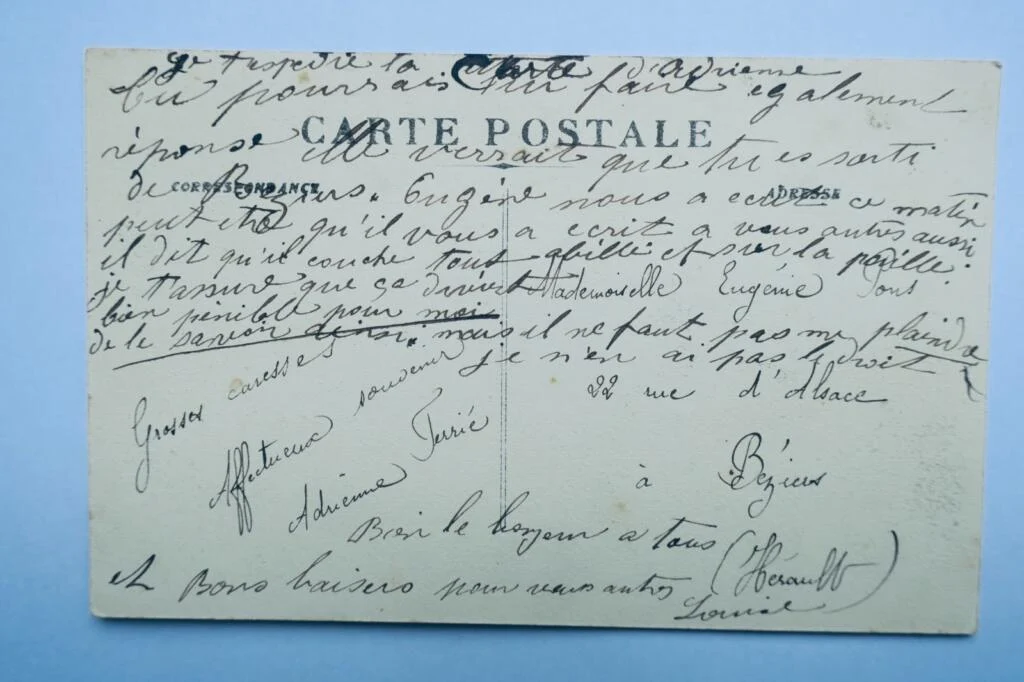 Je t'expedie la carte d'adrienne
tu pourrais lui faire egalement
CARTE POSTALE
réponse elle verrait que tu es sorti
CORRESPONDANCE
ADRESSE
de Beziers. Eugéne nous a ecrit ce matin
peut etre qu'il vous a ecrit a vous autres aussi
il dit qu'il couche tout abillé et sur la paille.
je t'assure que ça devient
Mademoiselle Eugénie Pons
bien pénible pour moi
de le savoir ainsi. mais il ne faut pas me plaindre
je n'en ai pas le droit
22 rue d'Alsace
Grosses caresses
Affectueux souvenir
Adrienne Ferrié
à Béziers
Bien le bonjour a tous
(Hérault)
et Bons baisers pour vous autres
Louise